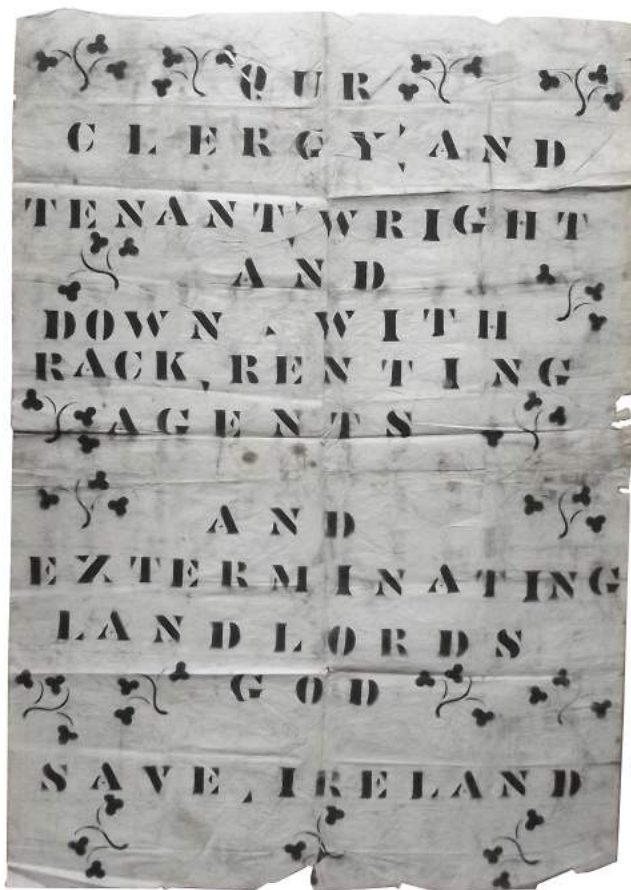 OUR
CLERGY, AND
TENANT, WRIGHT
AND
DOWN . WITH
RACK, RENTING
AGENTS
AND
EXTERMINATING
LANDLORDS
GOD
SAVE, IRELAND